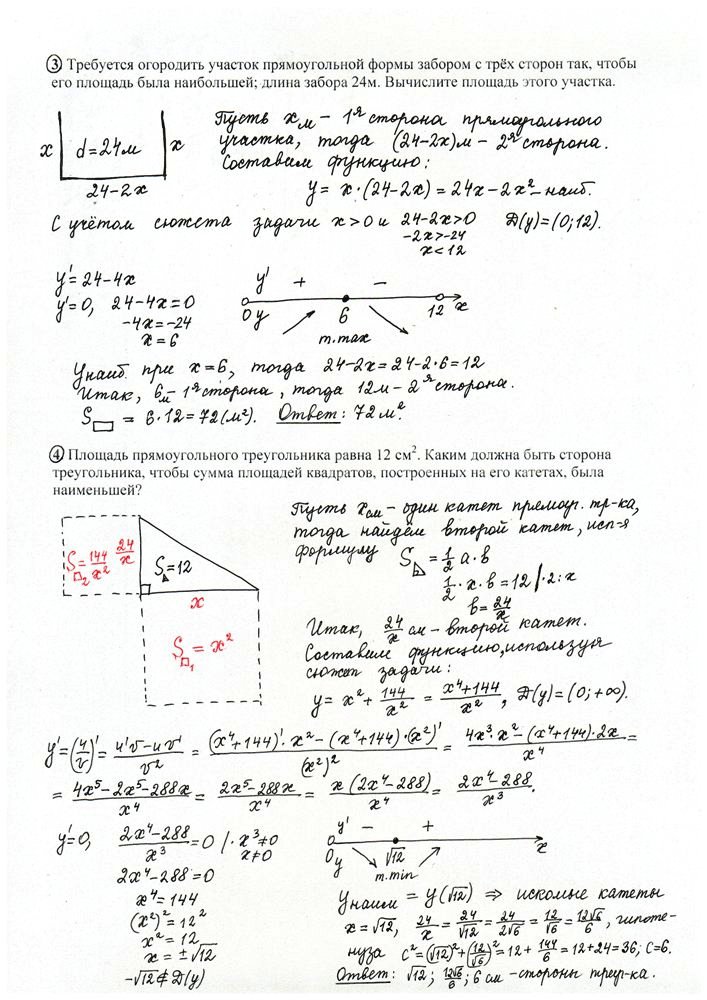 ③ Требуется огородить участок прямоугольной формы забором с трёх сторон так, чтобы
его площадь была наибольшей; длина забора 24м. Вычислите площадь этого участка.
x d=24м x
24-2x
Пусть x м - 1я сторона прямоугольного
участка, тогда (24-2x)м - 2я сторона.
Составим функцию:
y = x·(24-2x) = 24x-2x² - наиб.
С учётом сюжета задачи x>0 и 24-2x>0 D(y)=(0;12).
-2x>-24
x<12
y'=24-4x
y'=0, 24-4x=0
-4x=-24
x=6
y' + -
0 6 12 x
y
т.max
Yнаиб. при x=6, тогда 24-2x=24-2·6=12
Итак, 6м - 1я сторона, тогда 12м - 2я сторона.
S▭ = 6·12=72(м²). Ответ: 72м².
④ Площадь прямоугольного треугольника равна 12 см². Каким должна быть сторона
треугольника, чтобы сумма площадей квадратов, построенных на его катетах, была
наименьшей?
S□₂=144/x² 24/x S△=12
x
S□₁=x²
Пусть x см - один катет прямоуг. тр-ка,
тогда найдём второй катет, исп-я
формулу S△=1/2 a·b
1/2·x·b=12 |·2:x
b=24/x
Итак, 24/x см - второй катет.
Составим функцию, используя
сюжет задачи:
y = x²+144/x² = (x⁴+144)/x², D(y)=(0;+∞).
y'=(u/v)'=(u'v-uv')/v² = ((x⁴+144)'·x²-(x⁴+144)·(x²)')/(x²)² = (4x³·x²-(x⁴+144)·2x)/x⁴ =
= (4x⁵-2x⁵-288x)/x⁴ = (2x⁵-288x)/x⁴ = x(2x⁴-288)/x⁴ = (2x⁴-288)/x³.
y'=0, (2x⁴-288)/x³=0 |·x³≠0
x≠0
2x⁴-288=0
x⁴=144
(x²)²=12²
x²=12
x=±√12
-√12∉D(y)
y' - +
0 √12 x
y
т.min
Yнаим = y(√12) ⇒ искомые катеты
x=√12, 24/x=24/√12=24/2√6=12/√6=12√6/6, гипоте-
нуза c²=(√12)²+(12/√6)²=12+144/6=12+24=36; c=6.
Ответ: √12; 12√6/6; 6 см - стороны треуг-ка.